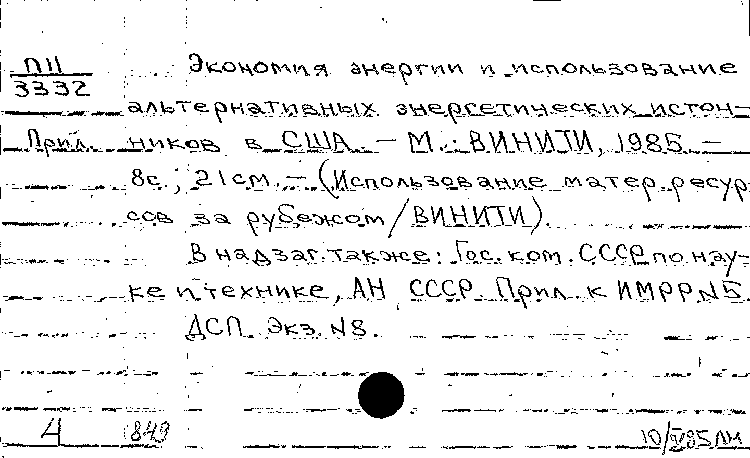 П11 Экономия энергии и использование
3332
альтернативных энергетических источ-
Прил. ников в США. – М.: ВИНИТИ, 1985. –
8с.; 21см. – (Использование матер. ресур
сов за рубежом/ВИНИТИ).
В надзаг. также: Гос. ком. СССР по нау-
ке и технике, АН СССР. Прил. к ИМРР N5.
ДСП. Экз. N8.
4 849 10/IV85